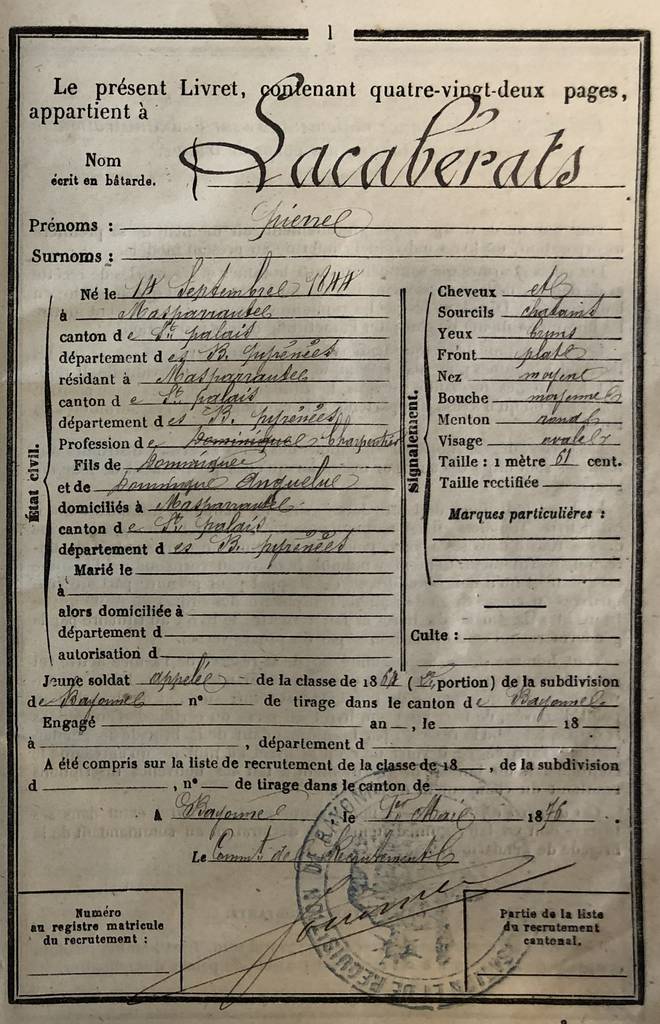 1
Le présent Livret, contenant quatre-vingt-deux pages,
appartient à
Nom Lacabérats
écrit en bâtarde.
Prénoms : pierre
Surnoms :
État civil.
Né le 14 Septembre 1844
à Masparraute
canton de St palais
département des B. pyrénées
résidant à Masparraute
canton de St palais
département des B. pyrénées
Profession de Dominique Charpentier
Fils de Dominique
et de Dominique
domiciliés à Masparraute
canton de St palais
département des B. pyrénées
Marié le
à
alors domiciliée à
département d
autorisation d
Signalement.
Cheveux et
Sourcils chatains
Yeux bruns
Front plat
Nez moyen
Bouche moyenne
Menton rond
Visage ovale
Taille : 1 mètre 61 cent.
Taille rectifiée
Marques particulières :
Culte :
Jeune soldat appelé de la classe de 1864 ( portion) de la subdivision
de Bayonne n° de tirage dans le canton de Bayonne
Engagé an , le 18
à , département d
A été compris sur la liste de recrutement de la classe de 18 , de la subdivision
d , n° de tirage dans le canton de
A Bayonne, le 1er Mai 1876
Le Commt de Recrutement
Numéro
au registre matricule
du recrutement :
Partie de la liste
du recrutement
cantonal.